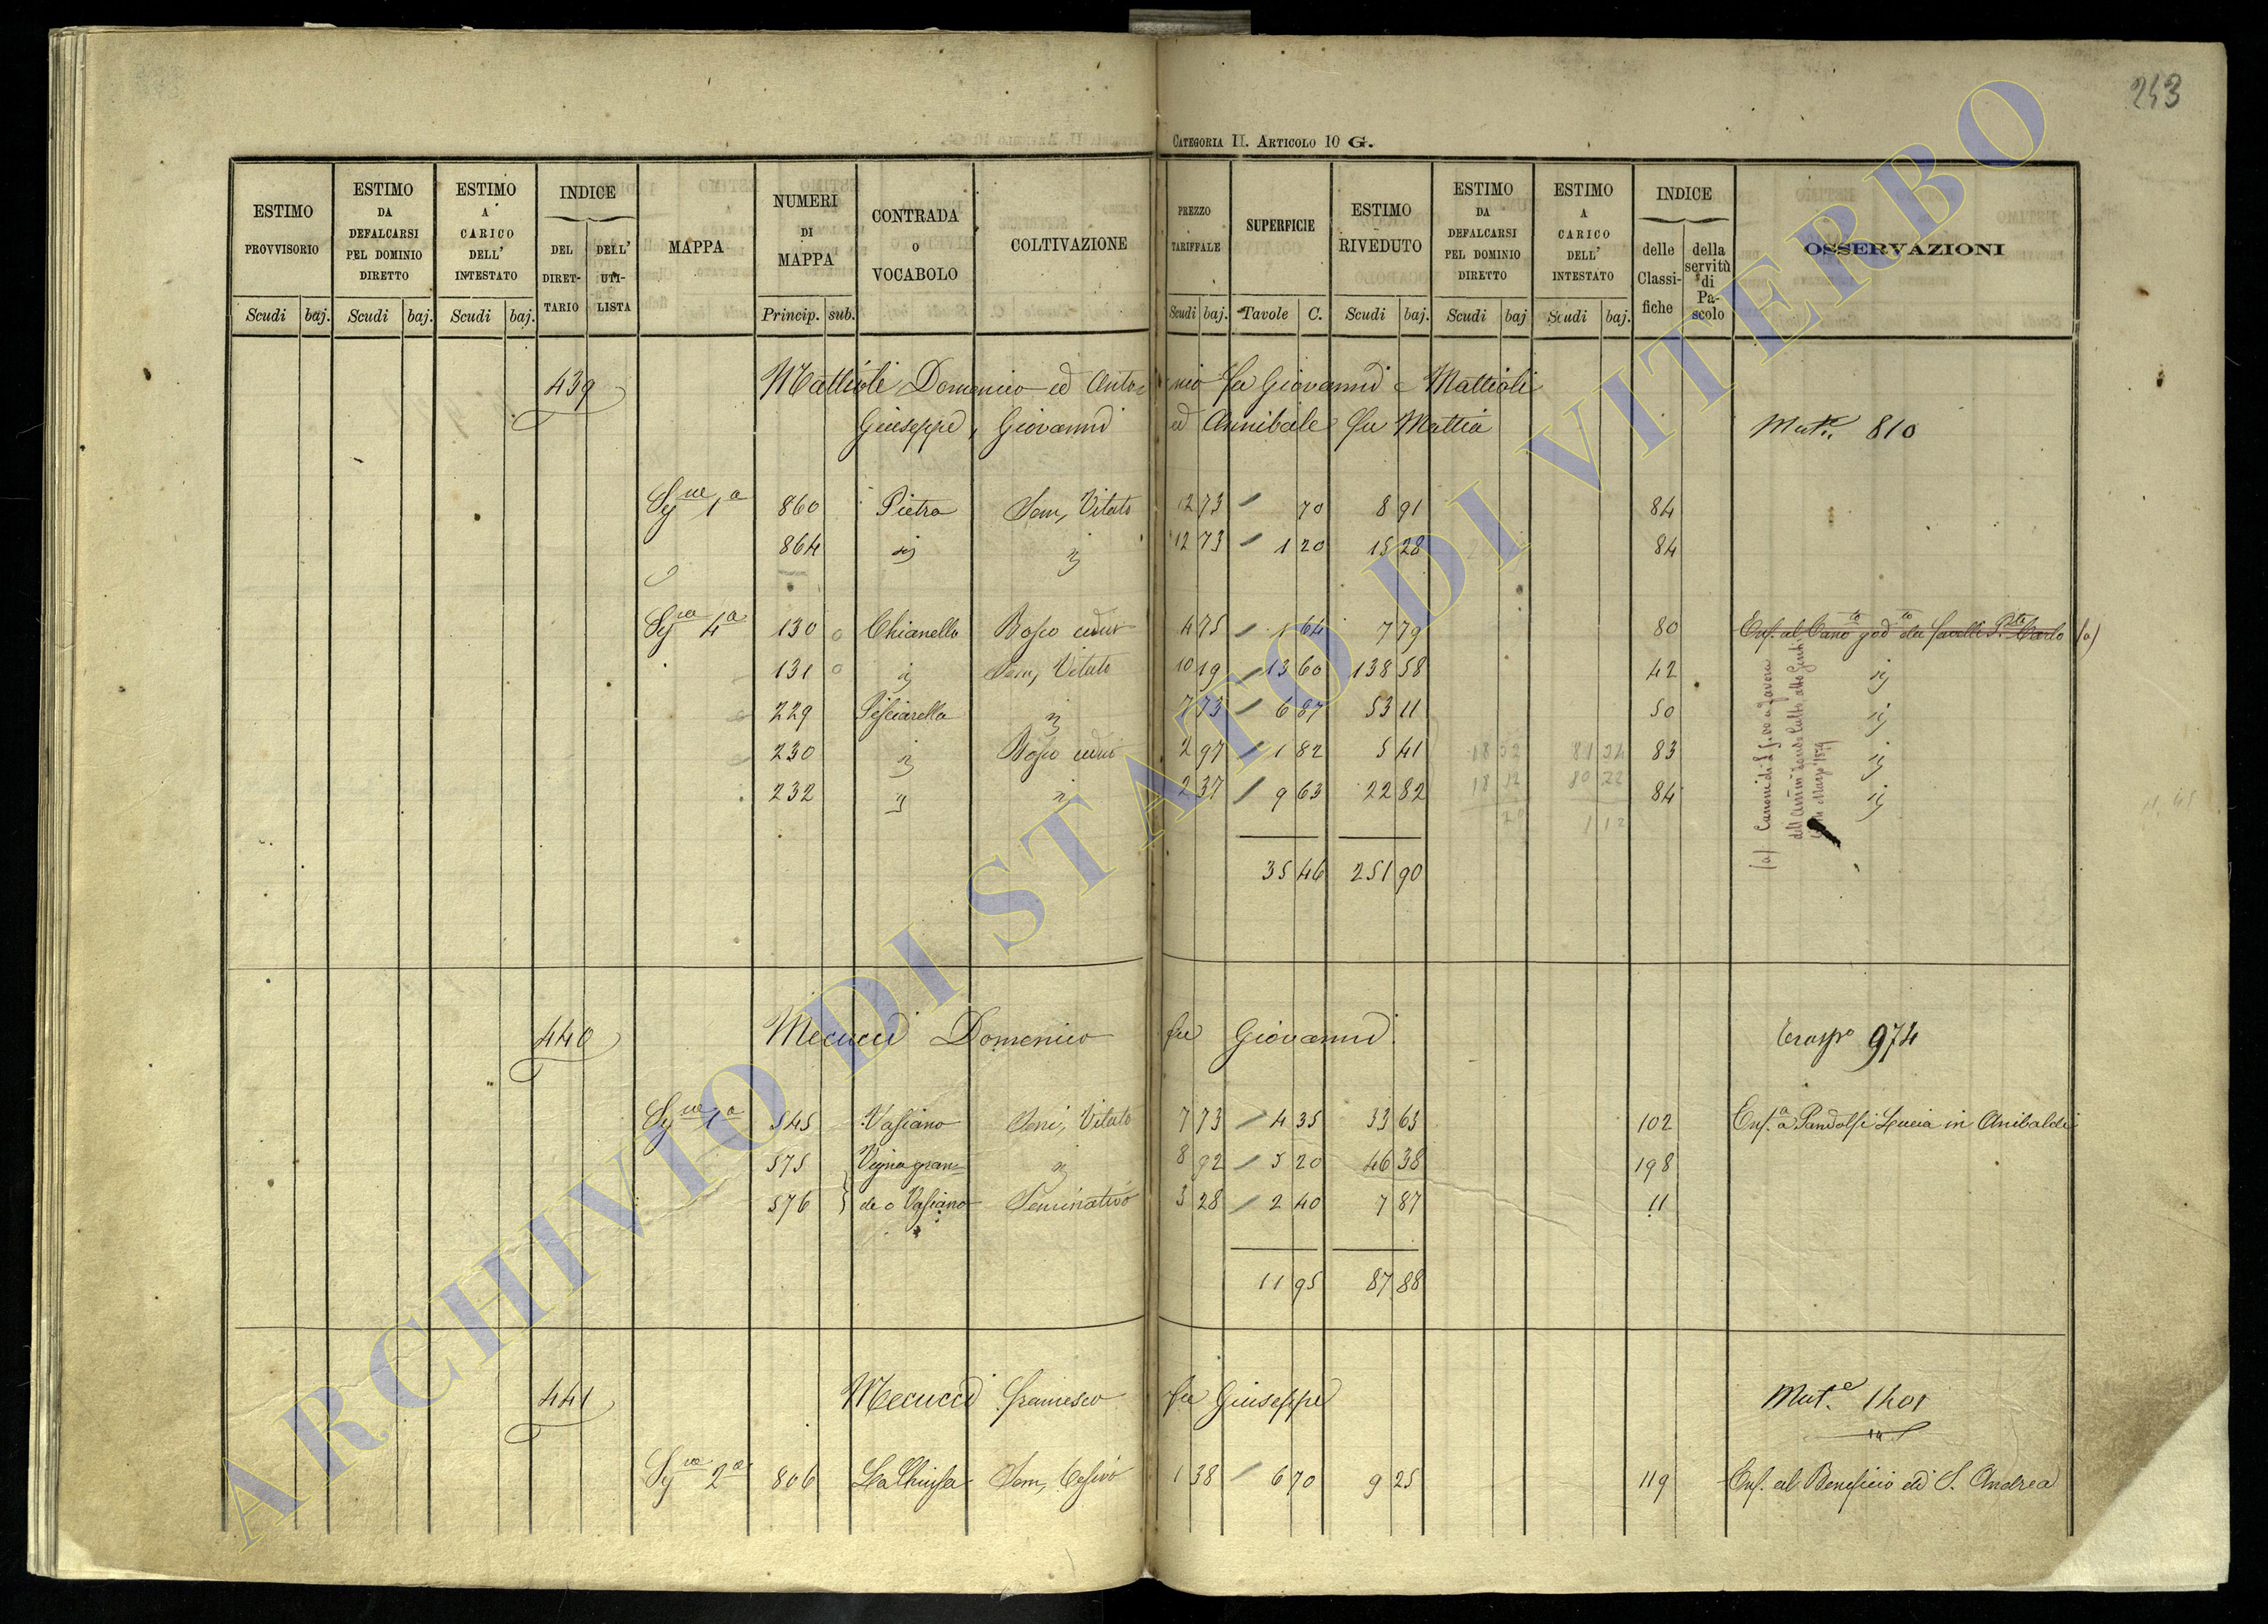 243
CATEGORIA II. ARTICOLO 10 G.
ESTIMO PROVVISORIO Scudi baj.
ESTIMO DA DEFALCARSI PEL DOMINIO DIRETTO Scudi baj.
ESTIMO A CARICO DELL' INTESTATO Scudi baj.
INDICE DEL DIRET-TARIO DELL' UTI-LISTA
MAPPA
NUMERI DI MAPPA Princip. sub.
CONTRADA o VOCABOLO
COLTIVAZIONE
PREZZO TARIFFALE Scudi baj.
SUPERFICIE Tavole C.
ESTIMO RIVEDUTO Scudi baj.
ESTIMO DA DEFALCARSI PEL DOMINIO DIRETTO Scudi baj
ESTIMO A CARICO DELL' INTESTATO Scudi baj.
INDICE delle Classi-fiche della servitù di Pa-scolo
OSSERVAZIONI
439 Mattioli Domenico ed Anto= nio fu Giovanni e Mattioli
Giuseppe, Giovanni ed Annibale fu Mattia Mut.e 810
Sy.ne 1a 860 Pietra Sem, Vitato 12 73 / 70 8 91 84
864 ij ij 12 73 / 1 20 15 28 84
Sy.ne 4a 130 o Chianello Bosco ceduo 4 75 / 1 64 7 79 80 (a)
131 o ij Sem, Vitato 10 19 / 13 60 138 58 42 ij
229 Pisciarella ij 7 73 / 6 87 53 11 50 ij
230 ij Bosco ceduo 2 97 / 1 82 5 41 83 ij
232 ij ij 2 37 / 9 63 22 82 84 ij
35 46 251 90
440 Mecucci Domenico fu Giovanni Trasp.o 974
Sy.ne 1a 545 Vasiano Sem, Vitato 7 73 / 4 35 33 63 102 Enf.a a Pandolfi Lucia in Anibaldi
575 Vigna gran= ij 8 92 / 5 20 46 38 198
576 } de o Vasiano Seminativo 3 28 / 2 40 7 87 11
11 95 87 88
441 Mecucci Francesco fu Giuseppe Mut.e 1401
Sy.ne 2a 806 La Chiusa Sem, Cesivo 1 38 / 6 70 9 25 119 Enf. al Beneficio di S. Andrea
ARCHIVIO DI STATO DI VITERBO